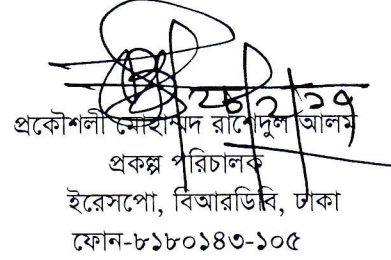 প্রকৌশলী মোহাম্মদ রাশেদুল আলম
প্রকল্প পরিচালক
ইরেসপো, বিআরডিবি, ঢাকা
ফোন-৮১৮০১৪৩-১০৫